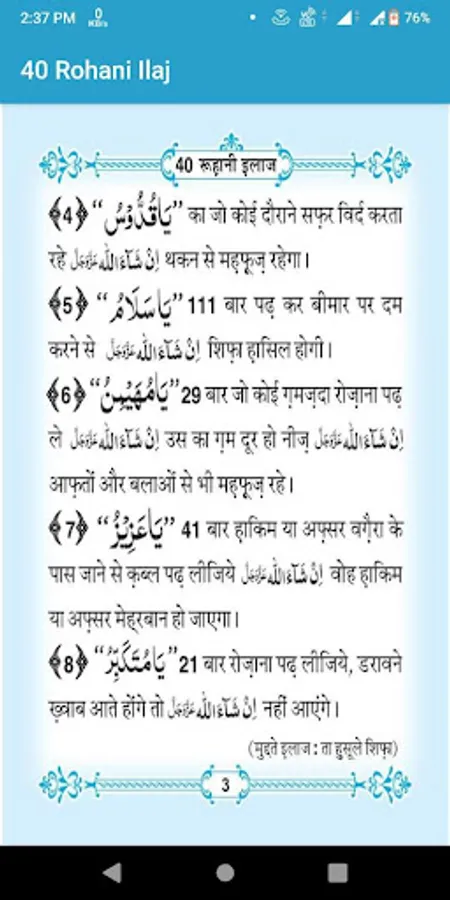 2:37 PM 0 KB/s 76%
40 Rohani Ilaj
40 रूहानी इलाज
﴾4﴿ “يَا قُدُّوْسُ” का जो कोई दौराने सफ़र विर्द करता
रहे اِنْ شَآءَاللّٰه عَزَّوَجَلَّ थकन से महफ़ूज़ रहेगा।
﴾5﴿ “يَا سَلَامُ” 111 बार पढ़ कर बीमार पर दम
करने से اِنْ شَآءَاللّٰه عَزَّوَجَلَّ शिफ़ा हासिल होगी।
﴾6﴿ “يَا مُهَيْمِنُ” 29 बार जो कोई ग़मज़दा रोज़ाना पढ़
ले اِنْ شَآءَاللّٰه عَزَّوَجَلَّ उस का ग़म दूर हो नीज़ اِنْ شَآءَاللّٰه عَزَّوَجَلَّ
आफ़तों और बलाओं से भी महफ़ूज़ रहे।
﴾7﴿ “يَا عَزِيْزُ” 41 बार हाकिम या अफ़्सर वग़ैरा के
पास जाने से क़ब्ल पढ़ लीजिये اِنْ شَآءَاللّٰه عَزَّوَجَلَّ वोह हाकिम
या अफ़्सर मेह्रबान हो जाएगा।
﴾8﴿ “يَا مُتَكَبِّرُ” 21 बार रोज़ाना पढ़ लीजिये, डरावने
ख़्वाब आते होंगे तो اِنْ شَآءَاللّٰه عَزَّوَجَلَّ नहीं आएंगे।
(मुद्दते इलाज : ता हुसूले शिफ़ा)
3